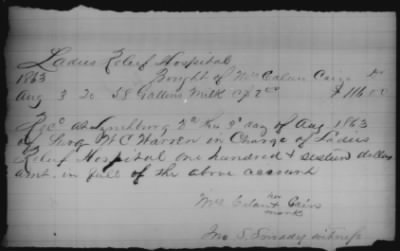 Ladies Relief Hospital
1863 Bought of Mrs Cain Dr
Aug 3 To 58 Gallons Milk @ 2 00 $116.00
Rec'd at Lynchburg Va this 3d day of Aug 1863
of Surg W C Warren in Charge of Ladies
Relief Hospital one hundred & sixteen dollars
amt. in full of the above account
Mrs her + Cain
mark
Jno S. witness